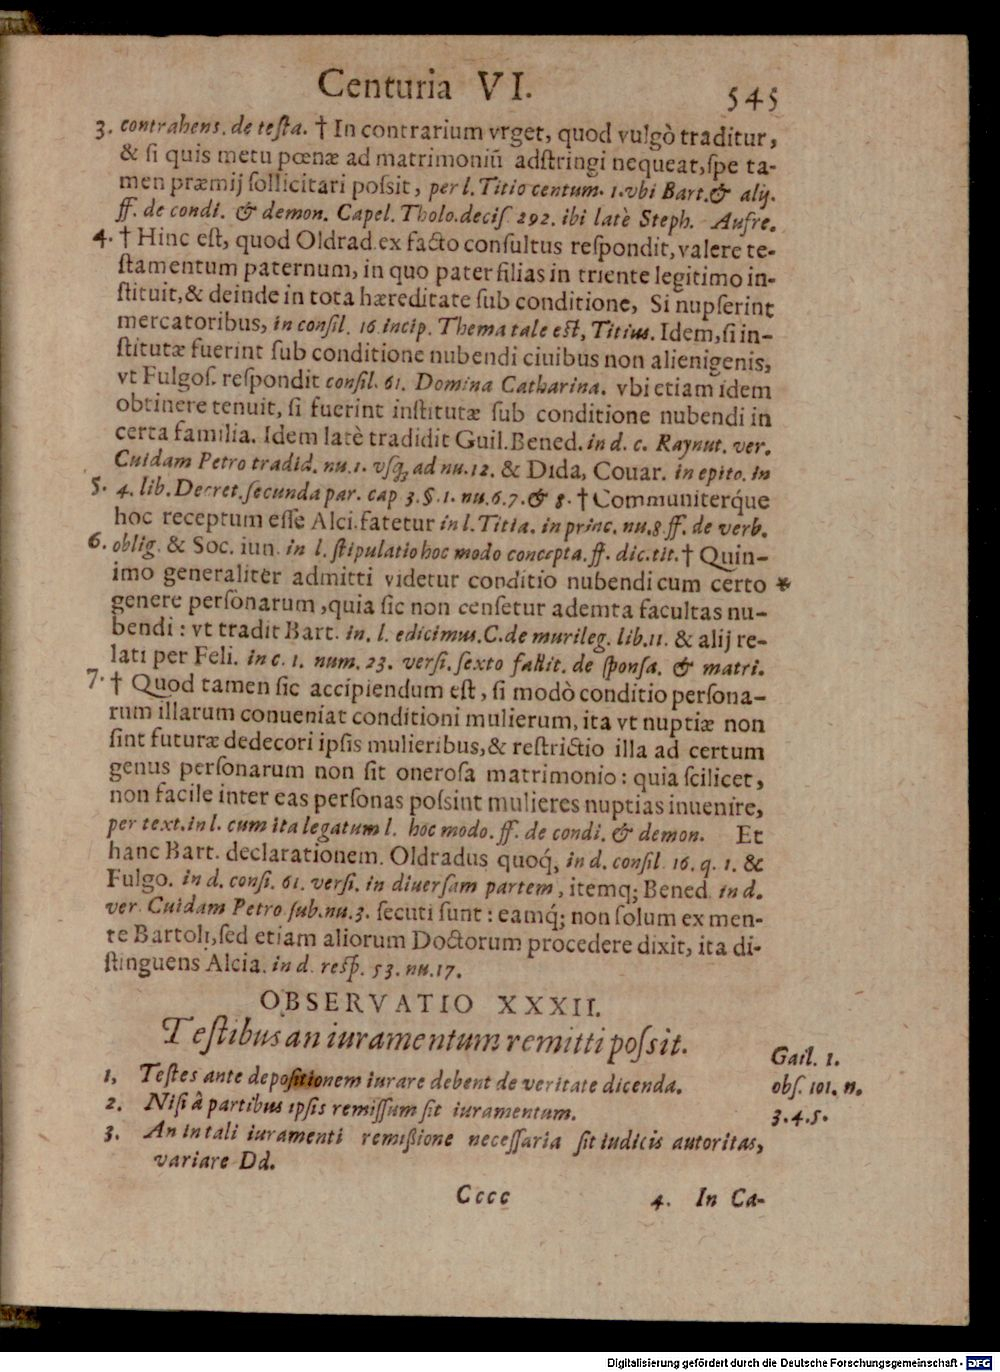 Centuria VI. 545
3. contrahens. de testa. † In contrarium vrget, quod vulgò traditur,
& si quis metu pœnæ ad matrimoniũ adstringi nequeat, spe ta-
men præmij sollicitari possit, per l. Titio centum. 1. vbi Bart. & alij.
ff. de condi. & demon. Capel. Tholo. decis 292. ibi latè Steph. Aufre.
4. † Hinc est, quod Oldrad. ex facto consultus respondit, valere te-
stamentum paternum, in quo pater filias in triente legitimo in-
stituit, & deinde in tota hæreditate sub conditione, Si nupserint
mercatoribus, in consil. 16. incip. Thema tale est, Titius. Idem, si in-
stitutæ fuerint sub conditione nubendi ciuibus non alienigenis,
vt Fulgos. respondit consil. 61. Domina Catharina. vbi etiam idem
obtinere tenuit, si fuerint institutæ sub conditione nubendi in
certa familia. Idem latè tradidit Guil. Bened. in d. c. Raynut. ver.
Cuidam Petro tradid. nu. 1. vsq; ad nu. 12. & Dida, Couar. in epito. in
5. 4. lib. Decret. secunda par. cap 3. §. 1. nu. 6. 7. & 8. † Communiterq́ue
hoc receptum esse Alci. fatetur in l. Titia. in princ. nu. 8. ff. de verb.
6. oblig. & Soc. iun. in l. stipulatio hoc modo concepta. ff. dic. tit. † Quin-
imo generaliter admitti videtur conditio nubendi cum certo *
genere personarum, quia sic non censetur ademta facultas nu-
bendi: vt tradit Bart. in. l. edicimus. C. de murileg. lib. 11. & alij re-
lati per Feli. in c. 1. num. 23. versi. sexto fallit. de sponsa. & matri.
7. † Quod tamen sic accipiendum est, si modò conditio persona-
rum illarum conueniat conditioni mulierum, ita vt nuptiæ non
sint futuræ dedecori ipsis mulieribus, & restrictio illa ad certum
genus personarum non sit onerosa matrimonio: quia scilicet,
non facile inter eas personas possint mulieres nuptias inuenire,
per text. in l. cum ita legatum l. hoc modo. ff. de condi. & demon. Et
hanc Bart. declarationem. Oldradus quoq́, in d. consil 16. q. 1. &
Fulgo. in d. consi. 61. versi. in diuersam partem, itemq; Bened. in d.
ver. Cuidam Petro sub. nu. 3. secuti sunt: eamq́; non solum ex men-
te Bartoli, sed etiam aliorum Doctorum procedere dixit, ita di-
stinguens Alcia. in d. resp. 53. nu. 17.
OBSERVATIO XXXII.
Testibus an iuramentum remitti possit.
Gail. 1.
obs. 101. n.
3. 4. 5.
1, Testes ante depositionem iurare debent de veritate dicenda.
2. Nisi â partibus ipsis remissum sit iuramentum.
3. An in tali iuramenti remißione necessaria sit iudicis autoritas,
variare Dd.
Cccc 4. In Ca-
Digitalisierung gefördert durch die Deutsche Forschungsgemeinschaft - DFG